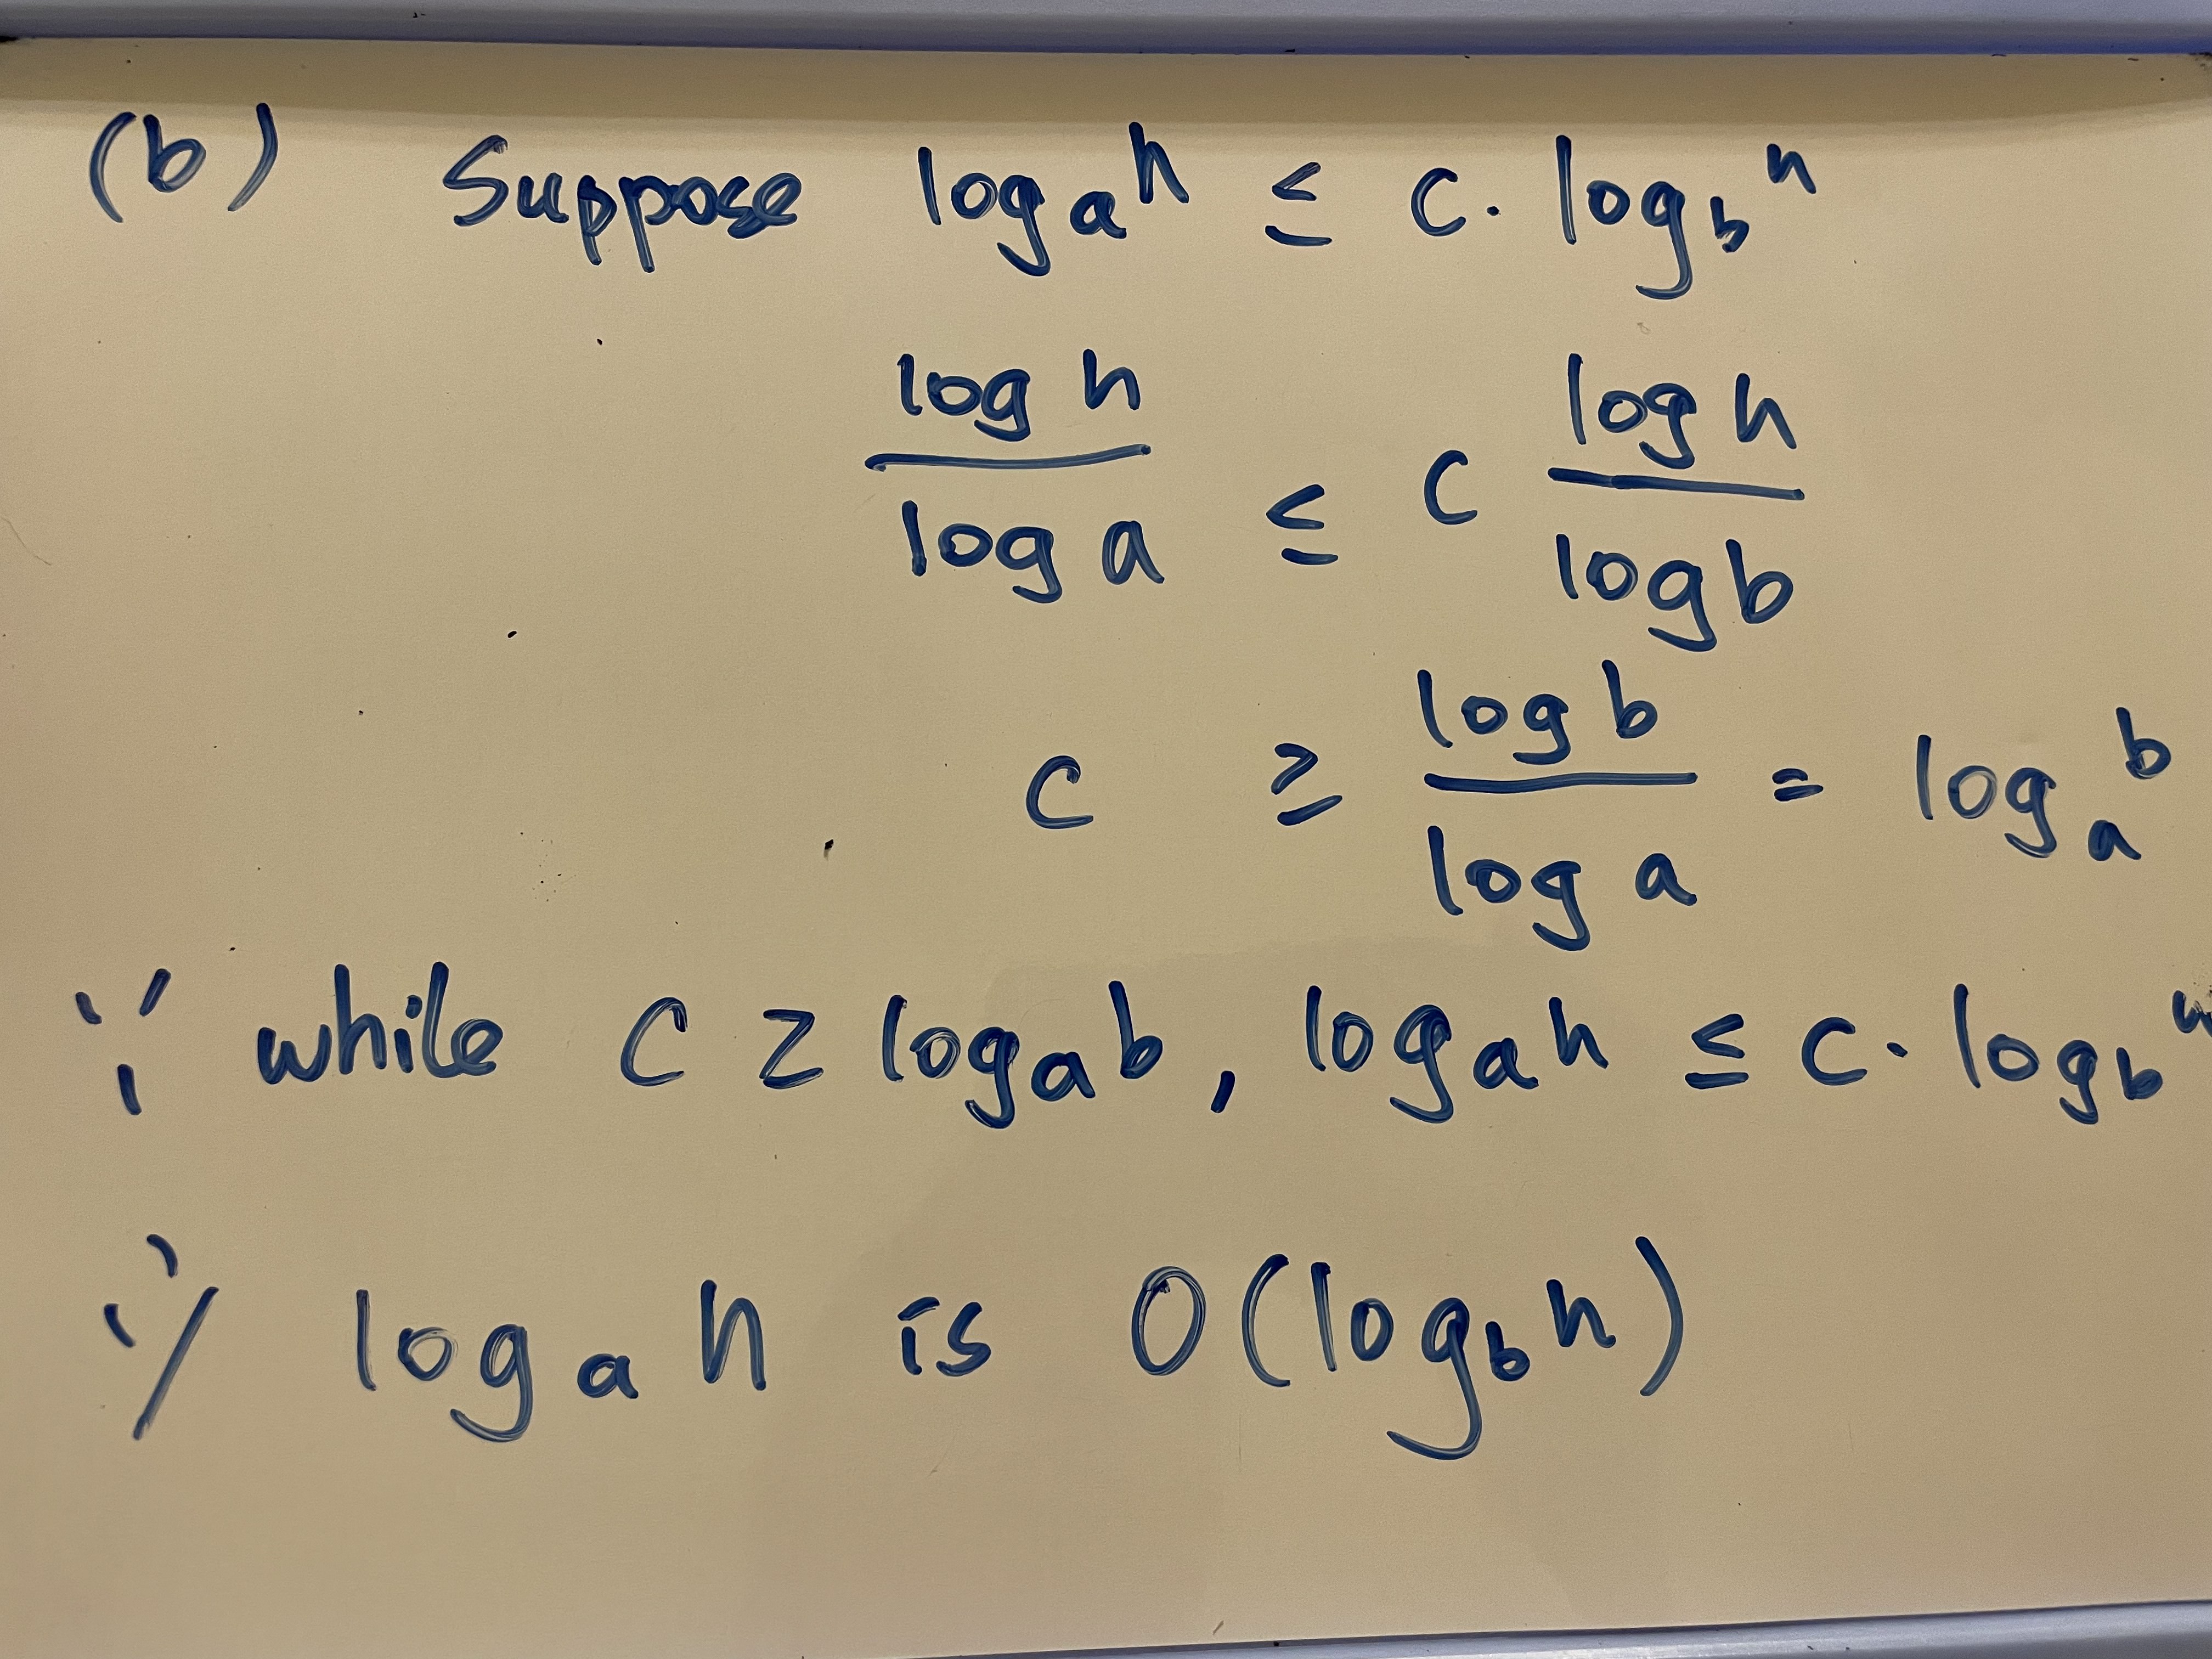 (b) Suppose logₐn ≤ c · log_b n
log n / log a ≤ c log n / log b
c ≥ log b / log a = logₐb
∵ while c ≥ logₐb, logₐn ≤ c · log_b n
∴ logₐn is O(log_b n)